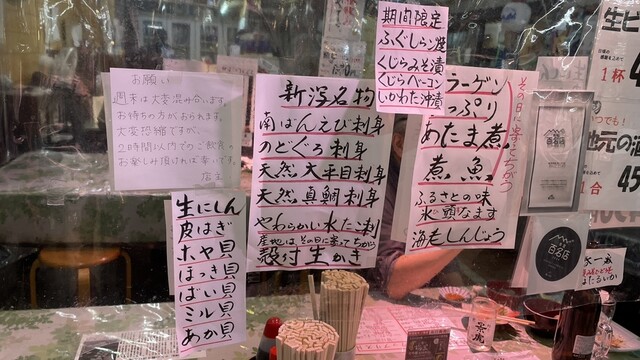 お願い
週末は大変混み合います。
お待ちの方がおられます。
大変恐縮ですが、
2時間以内でのご飲食の
お楽しみ頂ければ幸いです。
店主
生にしん
皮はぎ
ホヤ貝
ほっき貝
ばい貝
ミル貝
あか貝
新潟名物
南ばんえび刺身
のどぐろ刺身
天然大平目刺身
天然真鯛刺身
やわらかい水たこ刺
産地は、その日に寄ってちがう
殻付生かき
期間限定
ふぐしらこ焼
くじらみそ漬
くじらベーコン
いかわた沖漬
ラーゲン
っぷり
あたま煮
煮魚
その日に寄ってちがう
ふるさとの味
氷頭なます
海老しんじょう
百名店
百名店
生ビ
1杯
いつでも
地元の酒
1合
45